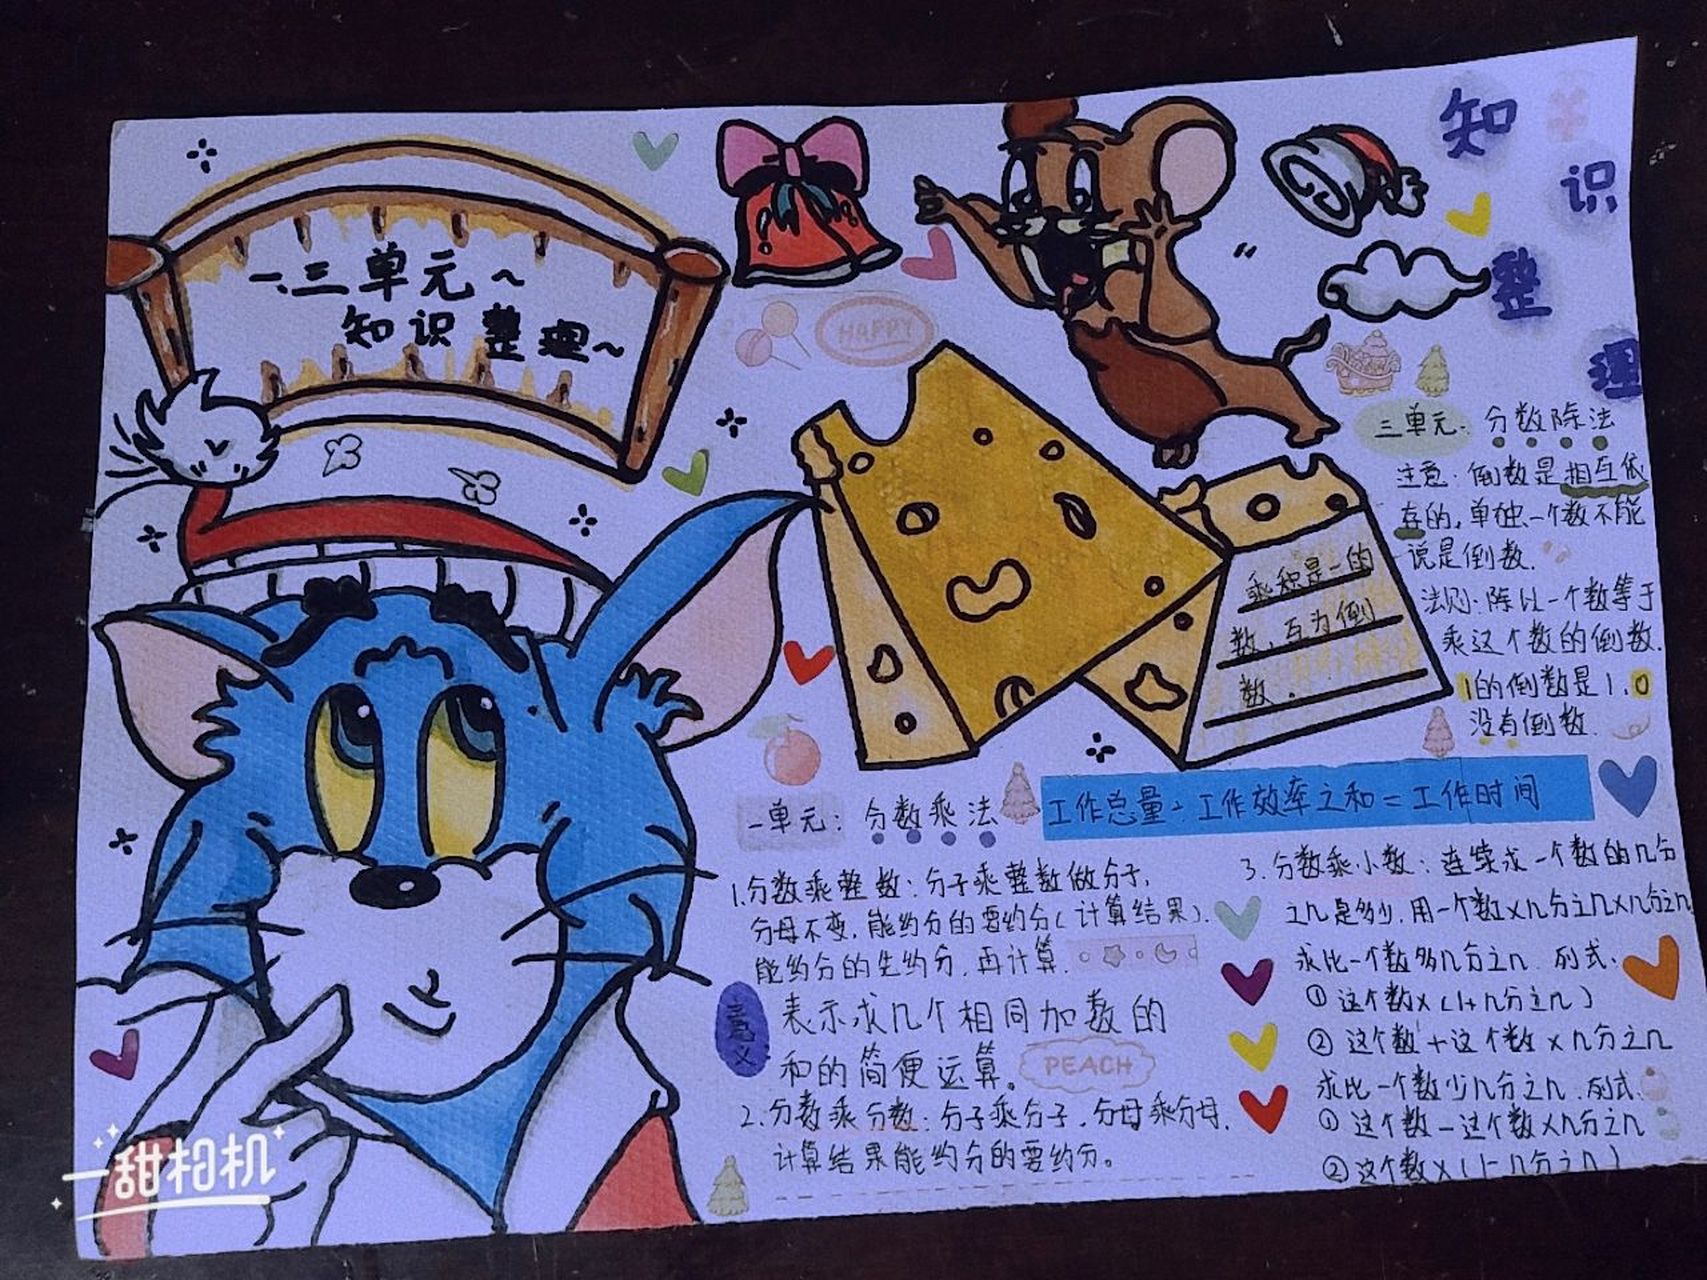 一.三单元~
知识整理~
HAPPY
知识整理
三单元:分数除法
注意:倒数是相互依
存的,单独一个数不能
说是倒数.
法则:除以一个数等于
乘这个数的倒数.
1的倒数是1,0
没有倒数.
乘积是一的
数,互为倒
数。
工作总量÷工作效率之和=工作时间
一单元:分数乘法
1.分数乘整数:分子乘整数做分子,
分母不变,能约分的要约分(计算结果).
能约分的先约分,再计算.
意义
表示求几个相同加数的
和的简便运算。
PEACH
2.分数乘分数:分子乘分子,分母乘分母,
计算结果能约分的要约分。
3.分数乘小数:连续求一个数的几分
之几是多少,用一个数×几分之几×几分之几
求比一个数多几分之几.列式:
①这个数×(1+几分之几)
②这个数+这个数×几分之几
求比一个数少几分之几.列式:
①这个数-这个数×几分之几
②这个数×(1-几分之几)
一甜相机